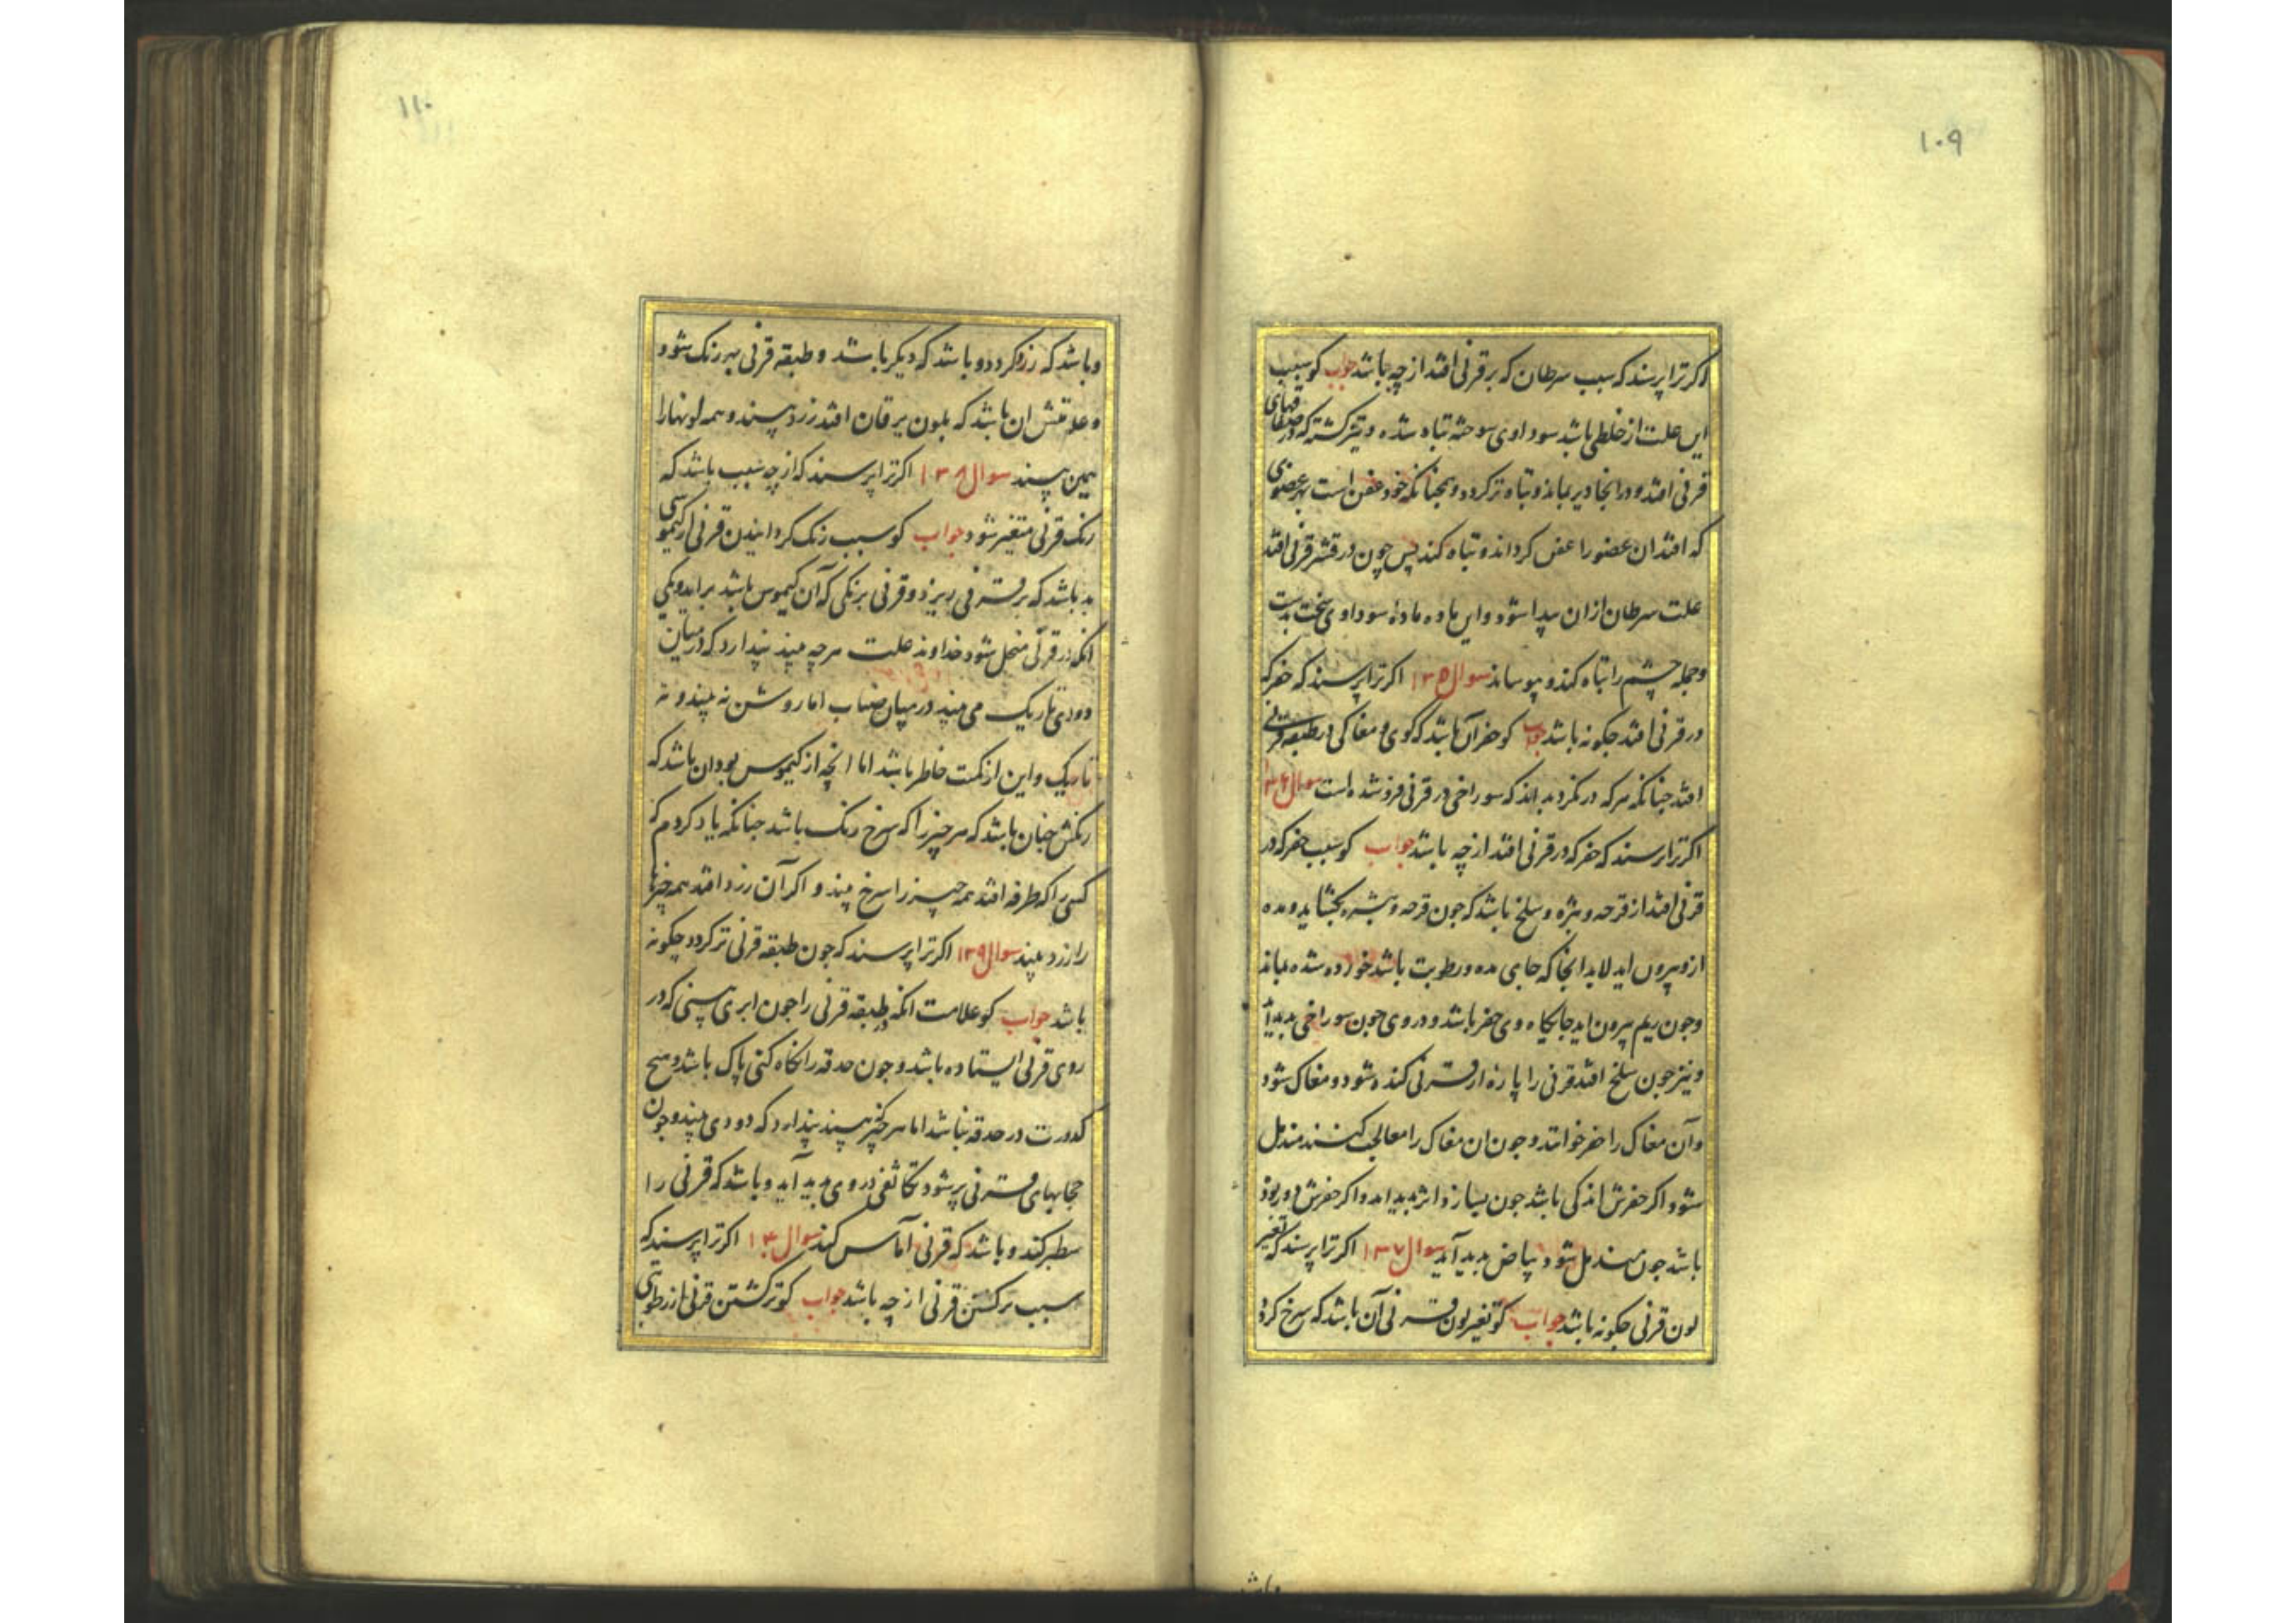 ۱۰۹
اکر ترا پرسند که سبب سرطان که بر قرنی افتد از چه باشد جواب کو سبب
این علت از خلطی باشد سوداوی سوخته تباه شده و تیز کشته که در طبقهای
قرنی افتد و در انجا دیر بماند و تباه تر کردد و همچنانکه خود عفن است بهر عضوی
که افتد ان عضو را عفن کرداند و تباه کند پس چون در قشر قرنی افتد
علت سرطان از ان پیدا شود و این ماده ماده سوداوی سخت بدست
و جمله چشم را تباه کند و بپوساند سوال ۱۳۵ اکر ترا پرسند که حفر که
در قرنی افتد چکونه باشد جواب کو حفر آن باشد که کوی و مغاکی در طبقه قرنی
افتد چنانکه هر که در نکرد بداند که سوراخی در قرنی فرو شده است سوال ۱۳۶
اکر ترا پرسند که حفر که در قرنی افتد از چه باشد جواب کو سبب حفر که در
قرنی افتد از قرحه و بثره و سلخ باشد که چون قرحه و بثره بکشاید و مده
ازو بیرون اید لابد انجا که جای مده و رطوبت باشد خورده شده بماند
و چون ریم بیرون اید جایکاه وی حفر باشد و در وی چون سوراخی بدید آید
و نیز چون سلخ افتد قرنی را پاره از قرنی کنده شود و مغاک شود
و آن مغاک را حفر خوانند و چون ان مغاک را معالجه کنند مندمل
شود اکر حفرش اندکی باشد چون بسازد اثر بدید اید و اکر حفرش دور بود
باشد چون مندمل شود بیاض بدید آید سوال ۱۳۷ اکر ترا پرسند که تغیر
لون قرنی چکونه باشد جواب کو تغیر لون قرنی آن باشد که سرخ کردد
۱۱۰
و باشد که زرد کردد و باشد که دیکر باشد و طبقه قرنی بهر رنک شود
و علامتش ان باشد که بلون یرقان افتد زرد بیند و همه لونها را
همین بیند سوال ۱۳۸ اکر ترا پرسند که از چه سبب باشد که
رنک قرنی متغیر شود جواب کو سبب رنک کردانیدن قرنی از کیموسی
بد باشد که بر قرنی ریزد و قرنی برنکی که آن کیموس باشد براید ویکی
انکه در قرنی منحل شود خداوند علت هر چه بیند پندارد که در میان
دودی تاریک می بیند در میان ضباب اما روشن نه بیند و نه
تاریک و این از نکمت خاطر باشد اما انچه از کیموس بود ان باشد که
رنکش چنان باشد که هر چیز را که سرخ رنک باشد چنانکه یاد کردم که
کسی را که طرفه افتد همه چیز را سرخ بیند و اکر آن زرد افتد همه چیزها
را زرد بیند سوال ۱۳۹ اکر ترا پرسند که چون طبقه قرنی تر کردد چکونه
باشد جواب کو علامت انکه طبقه قرنی را چون ابری بینی که در
روی قرنی ایستاده باشد و چون حدقه را نکاه کنی پاک باشد و هیچ
کدورت در حدقه نباشد اما هر چیز که بیند پندارد که دودی بیند و چون
حجابهای قرنی پر شود تکاثفی در وی بدید آید و باشد که قرنی را
سطبر کند و باشد که قرنی آماس کند سوال ۱۴۰ اکر ترا پرسند که
سبب تر کشتن قرنی از چه باشد جواب کو تر کشتن قرنی از رطوبتی